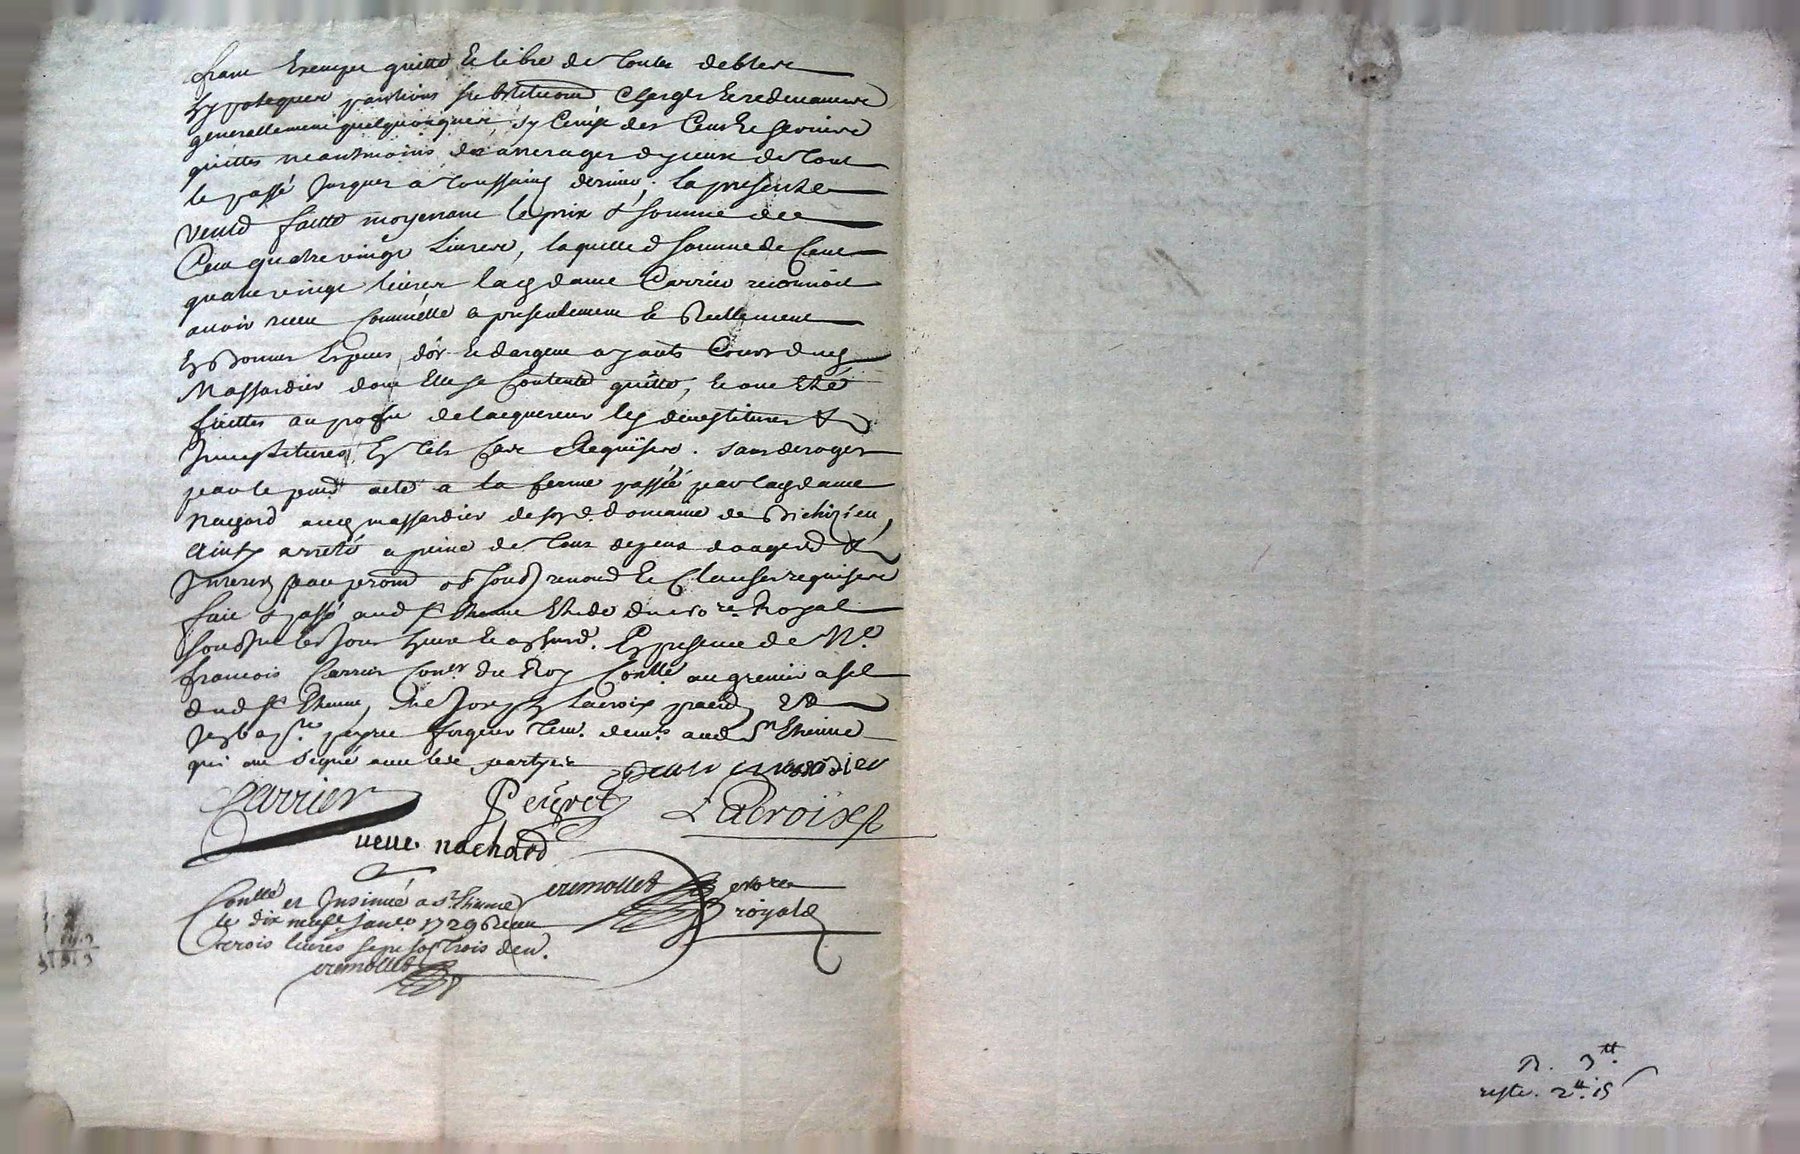 franc Exempte quitte et libre de toutes debtes
hypoteques pentions substitutions charges et redevances
generallement quelquonques, sy ce n'est des Cens et servis
quittes neantmoins des arrerages d'yceux de tout
le passé jusques a toussaint dernier; la presente
vente faitte moyenant le prix & somme de
Cent quatre vingt Livres, laquelle somme de Cent
quatre vingt livres lad dame Carrier reconnoit
avoir receu comme elle a presentement et reellement
En bonnes Especes d'or et d'argent ayants Cours dud
Massardier dont Elle se Contente quitte, et ont Eté
faittes au profit de l'acquereur les devestitures &
Investitures En tels Cas Requises. sans deroger
par le pnt acte a la ferme passée par lad dame
Nachard aud massardier de sond. domaine de Bichizieu,
Ainsy arreté a peine de tous depens domages &
Interets par prom obl soub renon et Clauses requises
fait & passé aud St Etienne Etude du no.re Royal
soubsne les jour heure et an susd. En presence de Me.
francois Carrier Coner. du Roy Contlr au grenier a sel
dud St Etienne, Me Joseph Lacroix praen &
peyret forgeur tem. demts aud St Etienne
qui ont signé avec les partyes jean masardier
Carrier Peyret Lacroix
veuve nachard
Contllé et Insinué a St. Etienne
le dix neufe janer. 1729 Reçu
trois livres sept sols trois den.
cremollet
cremollet nore
royal
R. 3tt.
reste. 2tt. 15